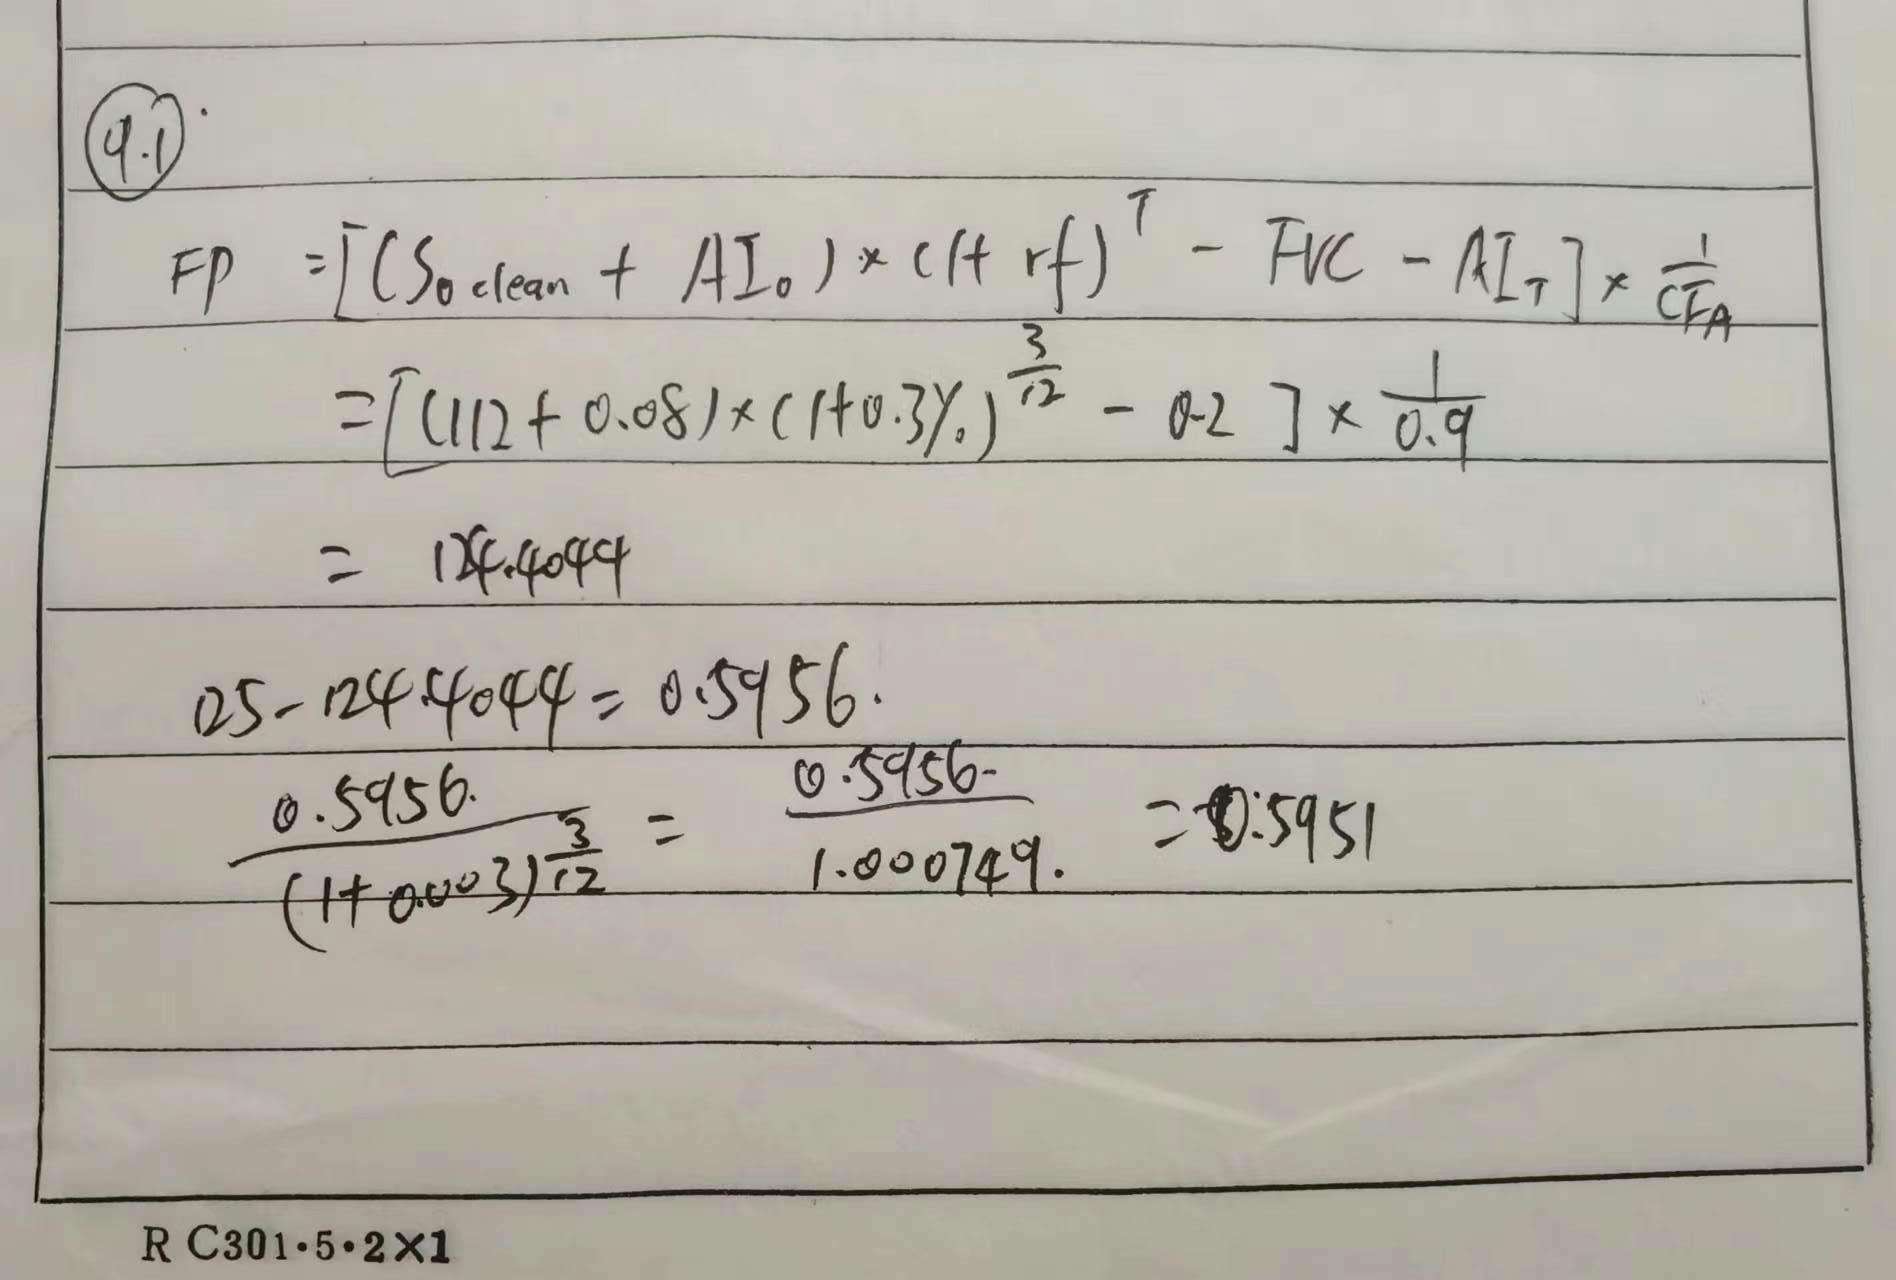 9.1
FP = [(S₀ clean + AI₀) × (1+ rf)^T - FVC - AI_T] × 1/CFA
= [(112 + 0.08) × (1+0.3%)^(3/12) - 0.2 ] × 1/0.9
= 124.4044
125 - 124.4044 = 0.5956.
0.5956. / (1+ 0.003)^(3/12) = 0.5956 / 1.000749. = 0.5951
R C301·5·2×1